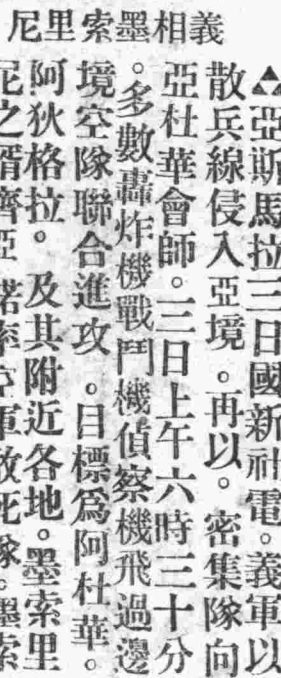 義相墨索里尼
▲▲亞斯馬拉三日國新社電。義軍以
散兵線侵入亞境。再以。密集隊向
亞杜華會師。三日上午六時三十分
。多數轟炸機戰鬥機偵察機飛過邊
境空隊聯合進攻。目標爲阿杜華。
阿狄格拉。及其附近各地。墨索里
尼之婿齊亞諾率空軍敢死隊。墨索